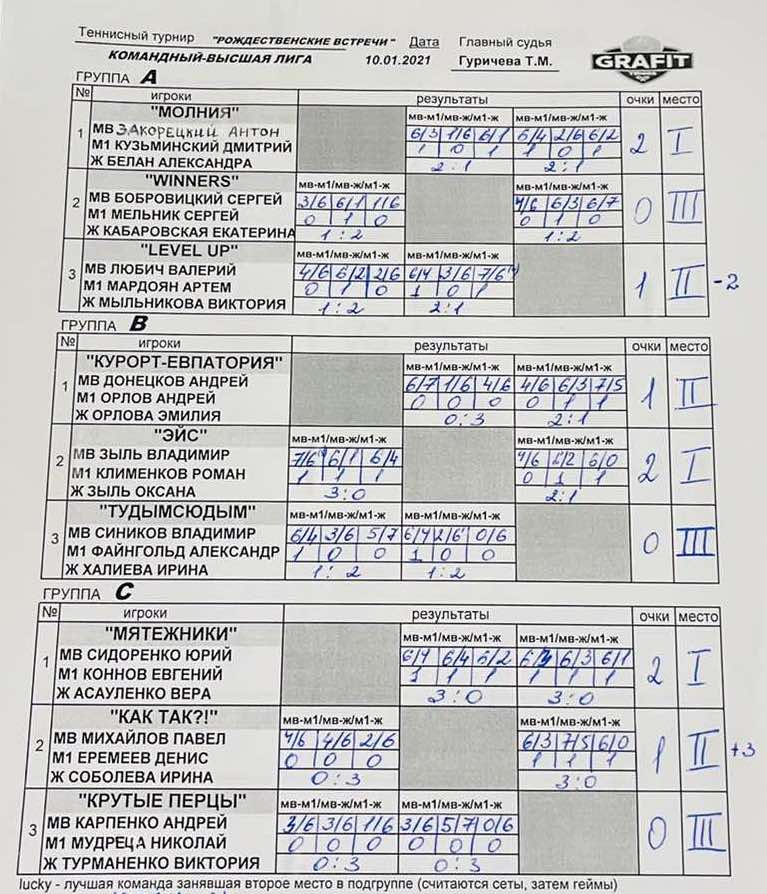 Теннисный турнир "РОЖДЕСТВЕНСКИЕ ВСТРЕЧИ" Дата Главный судья
КОМАНДНЫЙ-ВЫСШАЯ ЛИГА 10.01.2021 Гуричева Т.М. GRAFIT
ГРУППА A
№ игроки результаты очки место
"МОЛНИЯ" мв-м1/мв-ж/м1-ж мв-м1/мв-ж/м1-ж
1 МВ ЗАКОРЕЦКИЙ АНТОН 6/3 1/6 6/1 6/4 2/6 6/2 2 I
М1 КУЗЬМИНСКИЙ ДМИТРИЙ 1 0 1 1 0 1
Ж БЕЛАН АЛЕКСАНДРА 2:1 2:1
"WINNERS" мв-м1/мв-ж/м1-ж мв-м1/мв-ж/м1-ж
2 МВ БОБРОВИЦКИЙ СЕРГЕЙ 3/6 6/1 1/6 4/6 6/3 6/7 0 III
М1 МЕЛЬНИК СЕРГЕЙ 0 1 0 0 1 0
Ж КАБАРОВСКАЯ ЕКАТЕРИНА 1:2 1:2
"LEVEL UP" мв-м1/мв-ж/м1-ж мв-м1/мв-ж/м1-ж
3 МВ ЛЮБИЧ ВАЛЕРИЙ 4/6 6/2 2/6 6/4 3/6 7/6 1 II -2
М1 МАРДОЯН АРТЕМ 0 1 0 1 0 1
Ж МЫЛЬНИКОВА ВИКТОРИЯ 1:2 2:1
ГРУППА B
№ игроки результаты очки место
"КУРОРТ-ЕВПАТОРИЯ" мв-м1/мв-ж/м1-ж мв-м1/мв-ж/м1-ж
1 МВ ДОНЕЦКОВ АНДРЕЙ 6/7 1/6 4/6 4/6 6/3 7/5 1 II
М1 ОРЛОВ АНДРЕЙ 0 0 0 0 1 1
Ж ОРЛОВА ЭМИЛИЯ 0:3 2:1
"ЭЙС" мв-м1/мв-ж/м1-ж мв-м1/мв-ж/м1-ж
2 МВ ЗЫЛЬ ВЛАДИМИР 7/6 6/1 6/4 4/6 6/2 6/0 2 I
М1 КЛИМЕНКОВ РОМАН 1 1 1 0 1 1
Ж ЗЫЛЬ ОКСАНА 3:0 2:1
"ТУДЫМСЮДЫМ" мв-м1/мв-ж/м1-ж мв-м1/мв-ж/м1-ж
3 МВ СИНИКОВ ВЛАДИМИР 6/4 3/6 5/7 6/4 2/6 0/6 0 III
М1 ФАЙНГОЛЬД АЛЕКСАНДР 1 0 0 1 0 0
Ж ХАЛИЕВА ИРИНА 1:2 1:2
ГРУППА C
№ игроки результаты очки место
"МЯТЕЖНИКИ" мв-м1/мв-ж/м1-ж мв-м1/мв-ж/м1-ж
1 МВ СИДОРЕНКО ЮРИЙ 6/4 6/4 6/2 6/3 6/3 6/1 2 I
М1 КОННОВ ЕВГЕНИЙ 1 1 1 1 1 1
Ж АСАУЛЕНКО ВЕРА 3:0 3:0
"КАК ТАК?!" мв-м1/мв-ж/м1-ж мв-м1/мв-ж/м1-ж
2 МВ МИХАЙЛОВ ПАВЕЛ 4/6 4/6 2/6 6/3 7/5 6/0 1 II +3
М1 ЕРЕМЕЕВ ДЕНИС 0 0 0 1 1 1
Ж СОБОЛЕВА ИРИНА 0:3 3:0
"КРУТЫЕ ПЕРЦЫ" мв-м1/мв-ж/м1-ж мв-м1/мв-ж/м1-ж
3 МВ КАРПЕНКО АНДРЕЙ 3/6 3/6 1/6 3/6 5/7 0/6 0 III
М1 МУДРЕЦА НИКОЛАЙ 0 0 0 0 0 0
Ж ТУРМАНЕНКО ВИКТОРИЯ 0:3 0:3
lucky - лучшая команда занявшая второе место в подгруппе (считаются сеты, затем геймы)